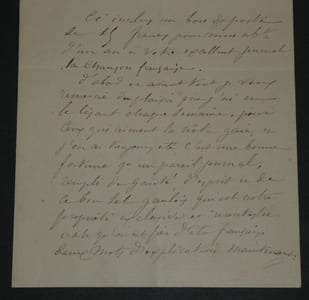 Ci inclus un bon de poste
de 15 francs pour mon abt
d'un an à votre excellent journal
la Chanson française.
D'abord et avant tout je veux
remercier du plaisir que j'ai eu en
le lisant chaque semaine. pour
ceux qui aiment la note gaie, et
j'en ai toujours été c'est une bonne
fortune qu'un pareil journal,
rempli de gaité d'esprit et de
ce bon sel gaulois qui est notre
propriété exclusive et
qu'on est fier d'être français
Deux mots d'explication maintenant